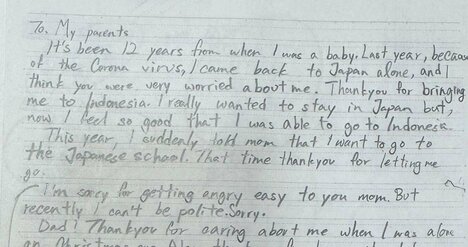 To. My parents
It's been 12 years from when I was a baby. Last year, because
of the Corona virus, I came back to Japan alone, and I
think you were very worried about me. Thankyou for bringing
me to Indonesia. I really wanted to stay in Japan but,
now I feel so good that I was able to go to Indonesia
This year, I suddenly told mom that I want to go to
the Japanese school. That time thankyou for letting me
go.
I'm sorry for getting angry easy to you mom. But
recently I can't be polite. Sorry.
Dad! Thankyou for caring about me when I was alone
on Christmas